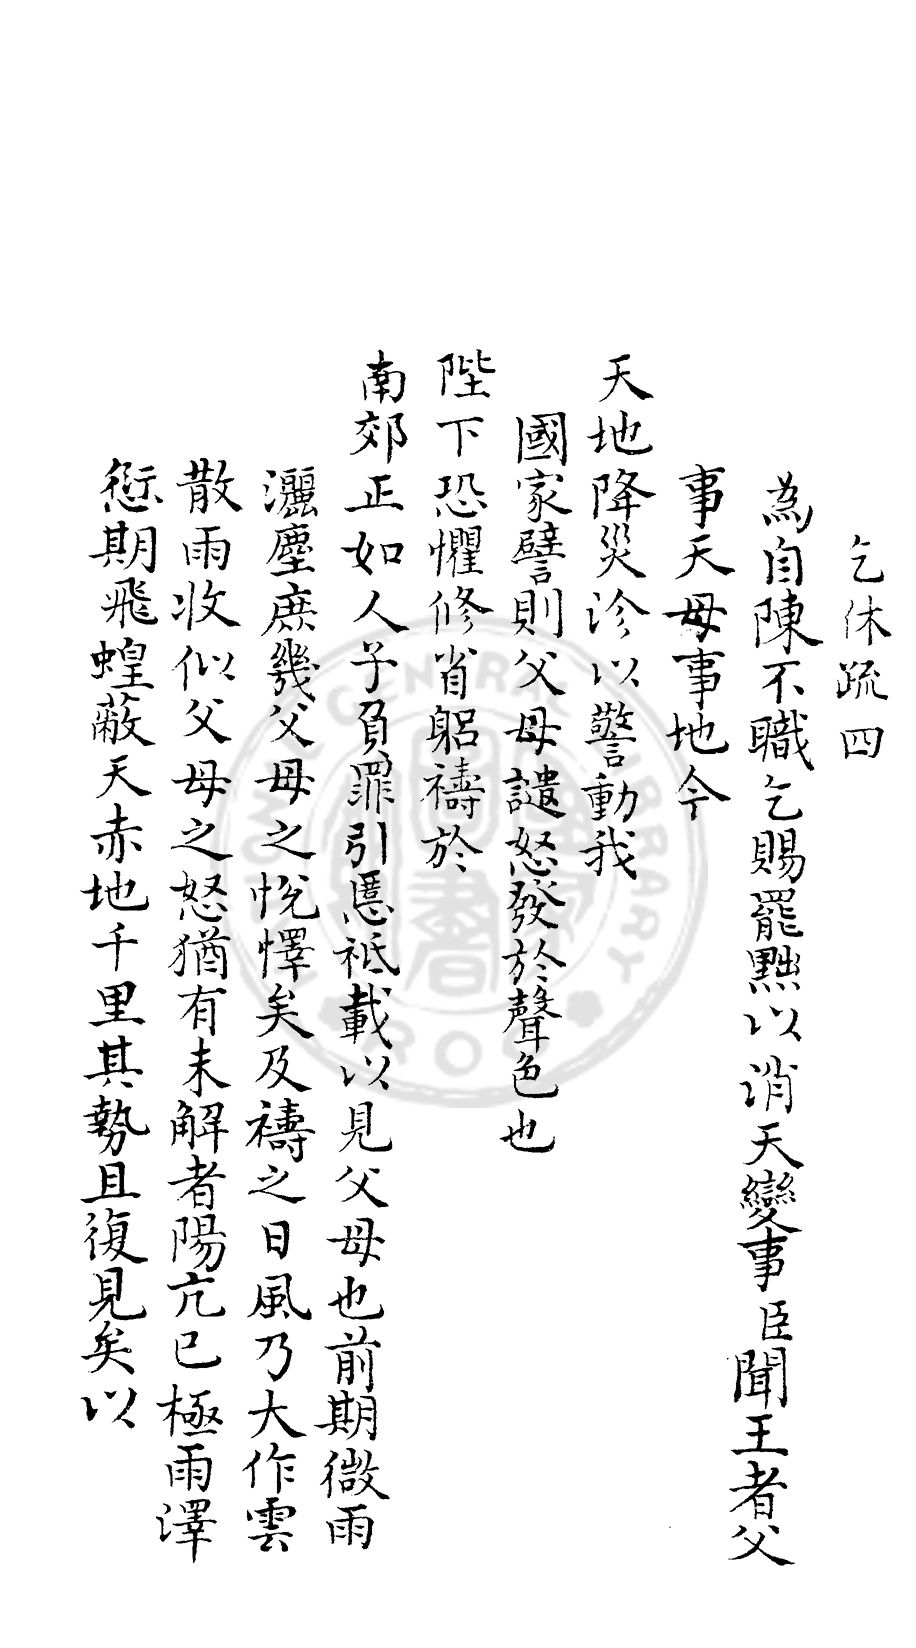 乞休疏四
為自陳不職乞賜罷黜以消天變事臣聞王者父
事天母事地今
天地降災沴以警動我
國家譬則父母譴怒發於聲色也
陛下恐懼修省躬禱於
南郊正如人子負罪引慝祗載以見父母也前期微雨
灑塵庶幾父母之悅懌矣及禱之日風乃大作雲
散雨收似父母之怒猶有未解者陽亢已極雨澤
愆期飛蝗蔽天赤地千里其勢且復見矣以
CENTRAL LIBRARY